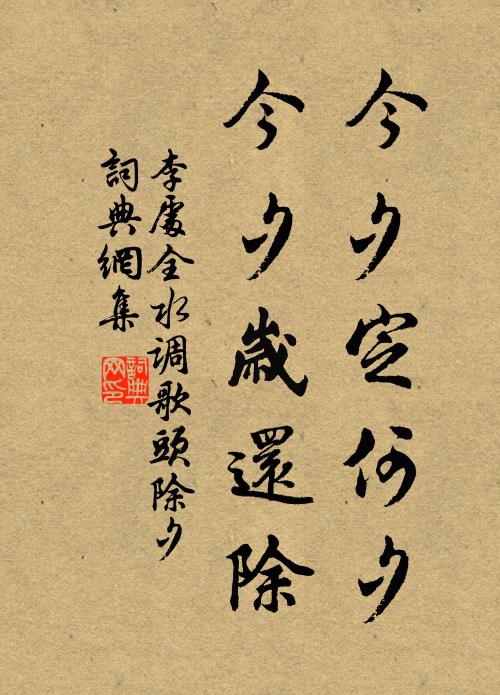 今夕定何夕
今夕歲還除
李處全水调歌頭除夕
詞典網集
詞典網印